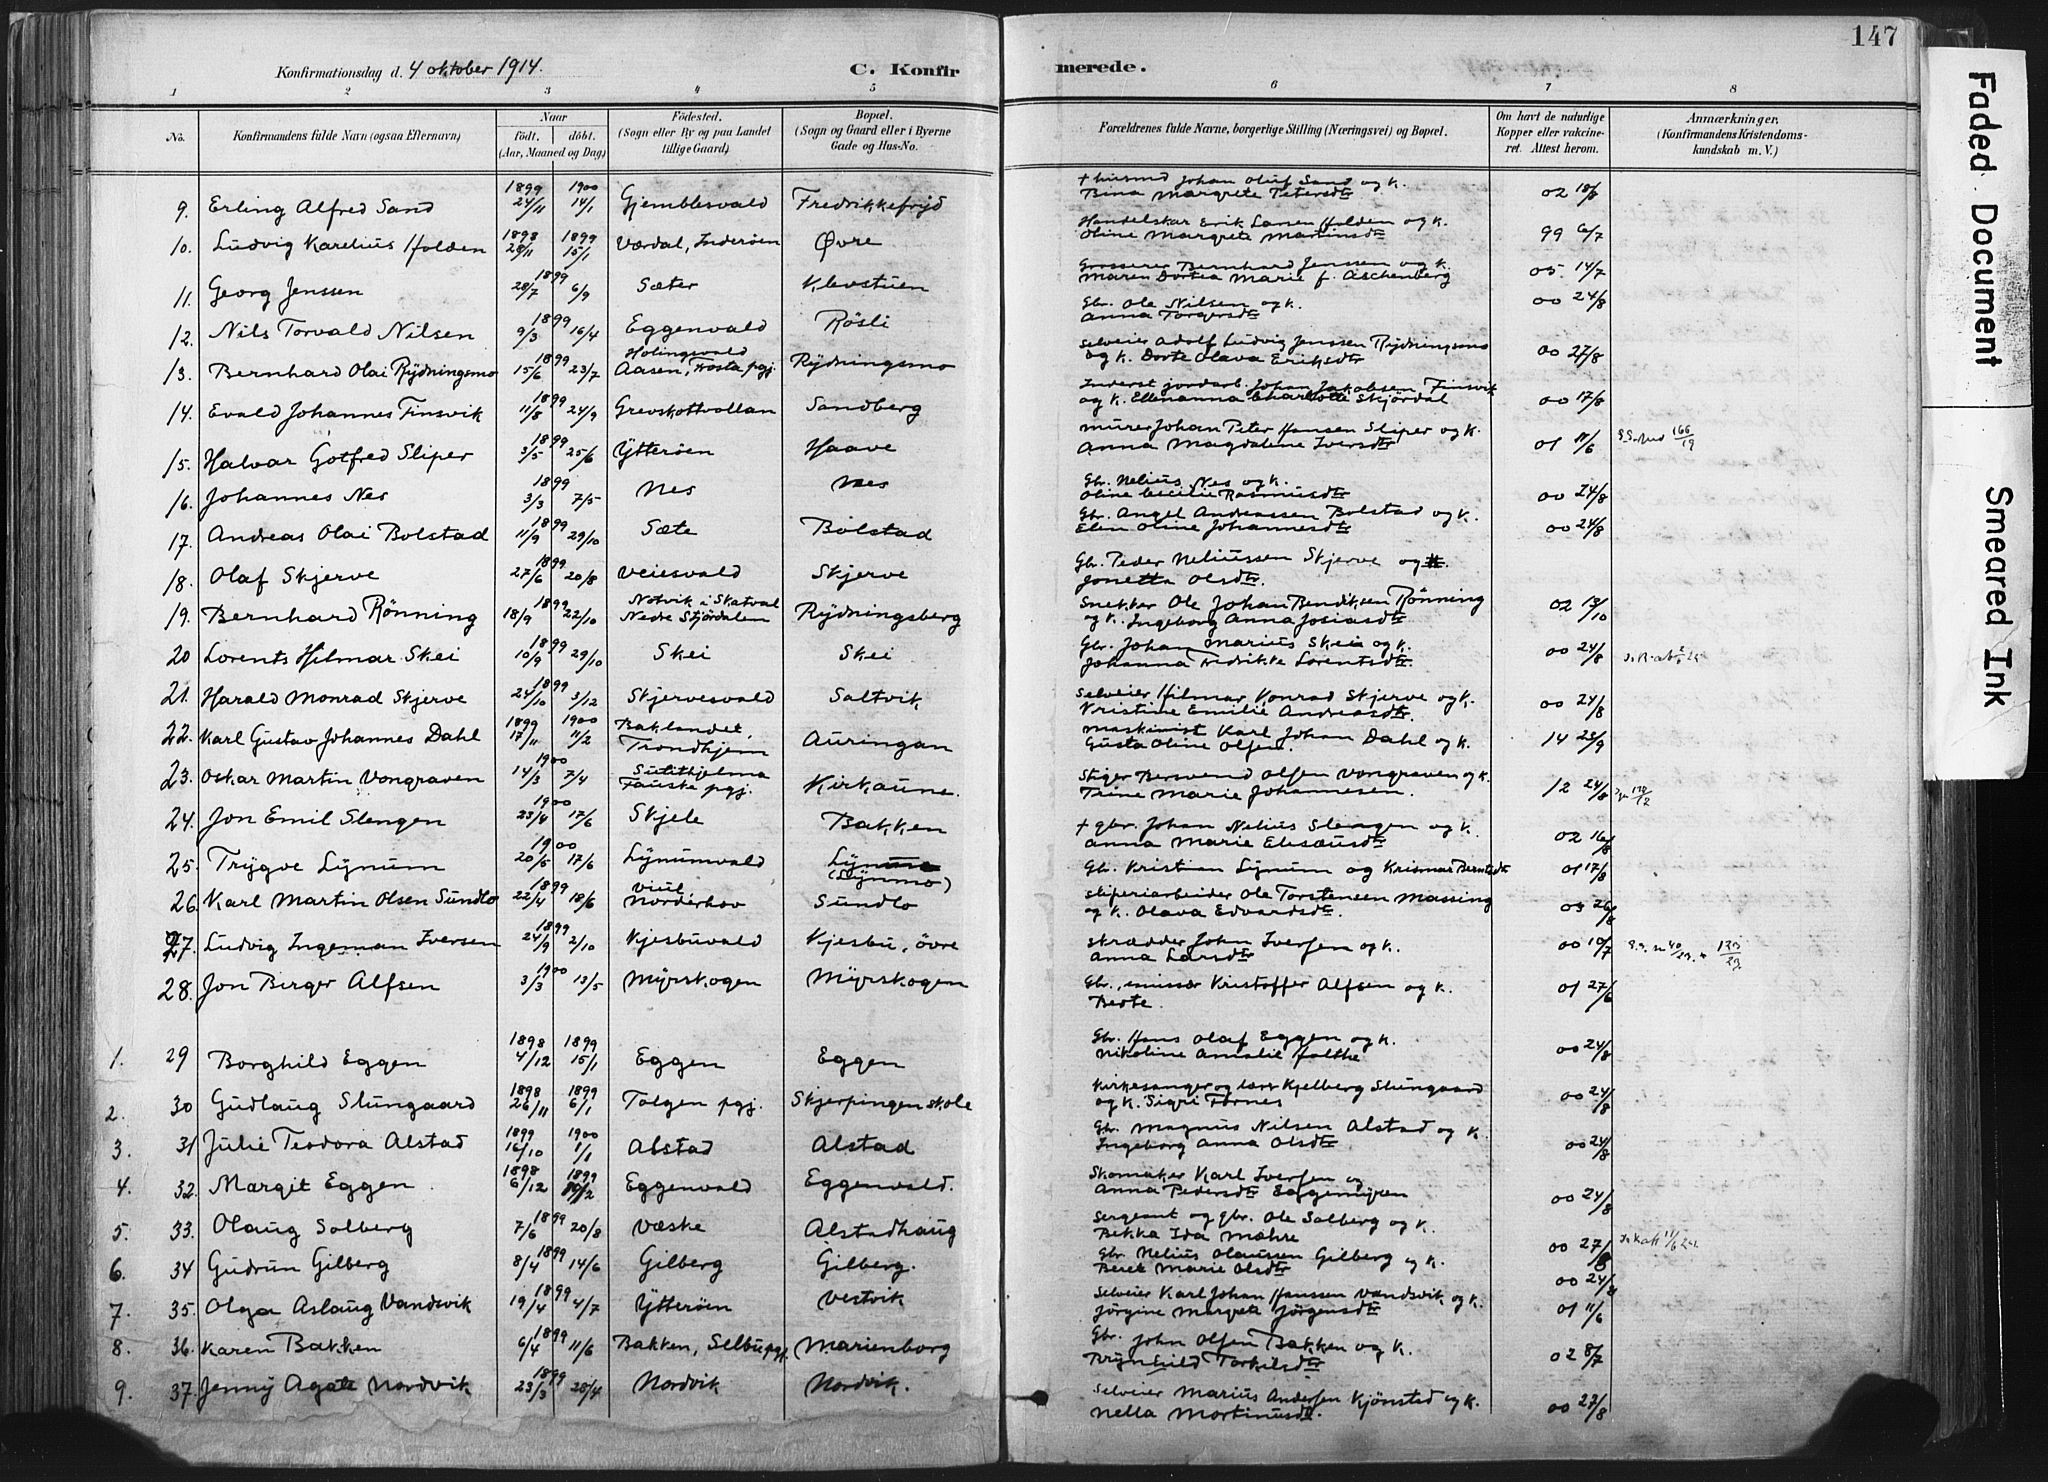 147
Konfirmationsdag d. 4 oktober 1914. C. Konfirmerede.
1 2 3 4 5 6 7 8
No. Konfirmandens fulde Navn (ogsaa Efternavn) Naar født. døbt. (Aar, Maaned og Dag) Fødested. (Sogn eller By og paa Landet tillige Gaard) Bopæl. (Sogn og Gaard eller i Byerne Gade og Hus-No. Forældrenes fulde Navne, borgerlige Stilling (Næringsvei) og Bopæl. Om havt de naturlige Kopper eller vakcineret. Attest herom. Anmærkninger. (Konfirmandens Kristendomskundskab m. V.)
9. Erling Alfred Sand 1899 24/11 1900 14/1 Gjemblesvald Fredrikkefryd + husmd Johan Oluf Sand og K. Bina Margrete Petersdtr 02 18/8
10. Ludvig Karelius Holden 1898 28/11 1899 15/1 Værdal, Inderøen Øvre Handelskar Erik Larsen Holden og K. Oline Margrete Martinsdtr 99 6/7
11. Georg Jenssen 1899 28/7 6/9 Sæter Klevstuen Grosserer Bernhard Jenssen og K. Maren Dortea Marie f. Aschenberg 05. 14/7
12. Nils Torvald Nilsen 1899 9/3 16/4 Eggenvald Røsli Gbr. Ole Nilsen og K. Anna Torgersdtr 00 24/8
13. Bernhard Olai Rydningsmo 1899 15/6 23/7 Holingsvald Aasen, Frosta pgj. Rydningsmo Selveier Adolf Ludvig Jenssen Rydningsmo og K. Dorte Olava Eriksdtr 00 27/8
14. Evald Johannes Finsvik 1899 11/8 24/9 Grevskottvollan Sandberg Inderst jordarb. Johan Jakobsen Finsvik og K. Ellenanna Charlotte Skjørdal 00 17/8
15. Halvar Gotfred Sliper 1899 3/5 25/6 Ytterøen Haave Murer Johan Peter Hansen Sliper og K. Anna Magdalene Iversdtr 01 11/6 166/19
16. Johannes Nes 1899 3/3 7/5 Nes Nes Gbr. Nelius Nes og K. Oline Cecilie Rasmusdtr 00 24/8
17. Andreas Olai Bolstad 1899 11/9 29/10 Sæte Bolstad Gbr. Angel Andreassen Bolstad og K. Elen Oline Johannesdtr 00 24/8
18. Olaf Skjerve 1899 27/6 20/8 Veiesvald Skjerve Gbr. Peder Neliussen Skjerve og K. Jonetta Olsdtr.
19. Bernhard Rønning 1899 18/9 22/10 Notvik i Skatval Nedre Stjørdalen Rydningsberg Snekker Ole Johan Bendiksen Rønning og K. Ingeborg Anna Josiasdtr 02 13/10
20 Lorents Hilmar Skei 1899 10/9 29/10 Skei Skei Gbr. Johan Marius Skei og K. Johanna Fredrikke Lorentsdtr. 00 24/8
21. Harald Monrad Skjerve 1899 24/10 3/12 Skjervesvald Saltvik Selveier Hilmar Konrad Skjerve og K. Kristine Emilie Andreasdtr. 00 24/8
22. Karl Gustav Johannes Dahl 1899 17/11 1900 11/2 Baklandet, Trondhjem Auringan Maskinist Karl Johan Dahl og K. Gusta Oline Olsen. 14 23/9
23. Oskar Martin Vongraven 1900 14/3 7/4 Sulithjelma Fauske pgj. Kirkaune. Stiger Bersvend Olsen Vongraven og K. Trine Marie Johannesen. 12 24/8
24. Jon Emil Slengen 1900 23/4 17/6 Skjele Bakken + gbr. Johan Nelius Slengen og K. Anna Marie Elisæusdtr 02 16/8
25. Trygve Lynum 1900 20/5 17/6 Lynumvald (Lynmo) Gb. Kristian Lynum og Krismar Berntsdtr 01 17/8
26. Karl Martin Olsen Sundlo 1899 22/4 18/6 Viul Norderhov Sundlo Sliperiarbeider Ole Torstensen Massing og K. Olava Edvardsdtr. 03 26/8
27. Ludvig Ingeman Iversen 1899 24/9 2/10 Kjesbuvald Kjesbu, øvre Skrædder John Iversen og K. Anna Larsdtr 00 10/7
28. Jon Birger Alfsen 1900 3/3 13/5 Myrskogen Myrskogen Gbr., emissær Kristoffer Alfsen og K. Berte. 01 27/6
1. 29 Borghild Eggen 1898 4/12 1899 15/1 Eggen Eggen Gbr. Hans Olaf Eggen og K. Nikoline Amalie Holthe 00 24/8
2. 30 Gudlaug Slungaard 1898 26/11 1899 6/1 Tolgen pgj. Skjerpingen skole Kirkesanger og lærer Kjelberg Slungaard og K. Sigri Tornes 00 24/8
3. 31 Julie Teodora Alstad 1899 16/10 1900 1/1 Alstad Alstad Gbr. Magnus Nilsen Alstad og K. Ingeborg Anna Olsdtr 00 24/8
4. 32. Margit Eggen 1898 6/12 1899 Eggenvald Eggenvald. Skomaker Karl Iversen og Anna Pedersdtr Eggemyren 00 24/8
5. 33. Olaug Solberg 1899 7/6 20/8 Væske Alstadhaug Sergeant og gbr. Ole Solberg og K. Bekka Ida Mæhre 00 27/8
6. 34 Gudrun Gilberg 1899 8/4 14/6 Gilberg Gilberg. Gbr Nelius Olaussen Gilberg og K. Beret Marie Olsdtr 00 24/8
7. 35. Olga Aslaug Vandsvik 1899 19/4 4/7 Ytterøen Vestvik Selveier Karl Johan Hanssen Vandsvik og K. Jørgine Margrete Jørgensdtr 01 11/6
8. 36. Karen Bakken 1899 6/4 11/6 Bakken, Selbu pgj. Marienborg Gbr. John Olsen Bakken og K. Brynhild Torkilsdtr 02 8/7
9. 37. Jenny Agate Nordvik 1899 23/3 28/4 Nordvik Nordvik. Selveier Marius Andersen Kjønstad og K. Nella Mortinusdtr. 00 27/8
Faded Document
Smeared Ink